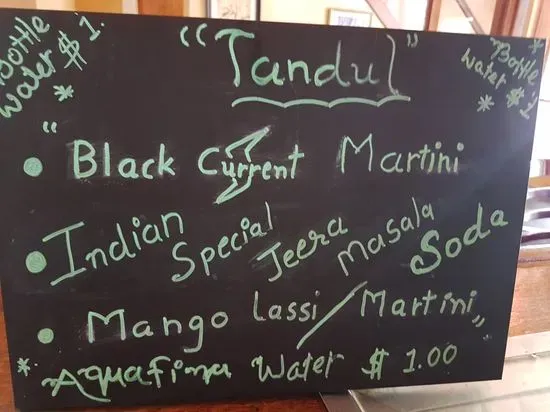 Bottle Water $1.
"Tandul"
Bottle Water $1
*
*
"
• Black Current Martini
• Indian Special Jeera Masala Soda
• Mango Lassi / Martini "
* Aquafina Water $1.00